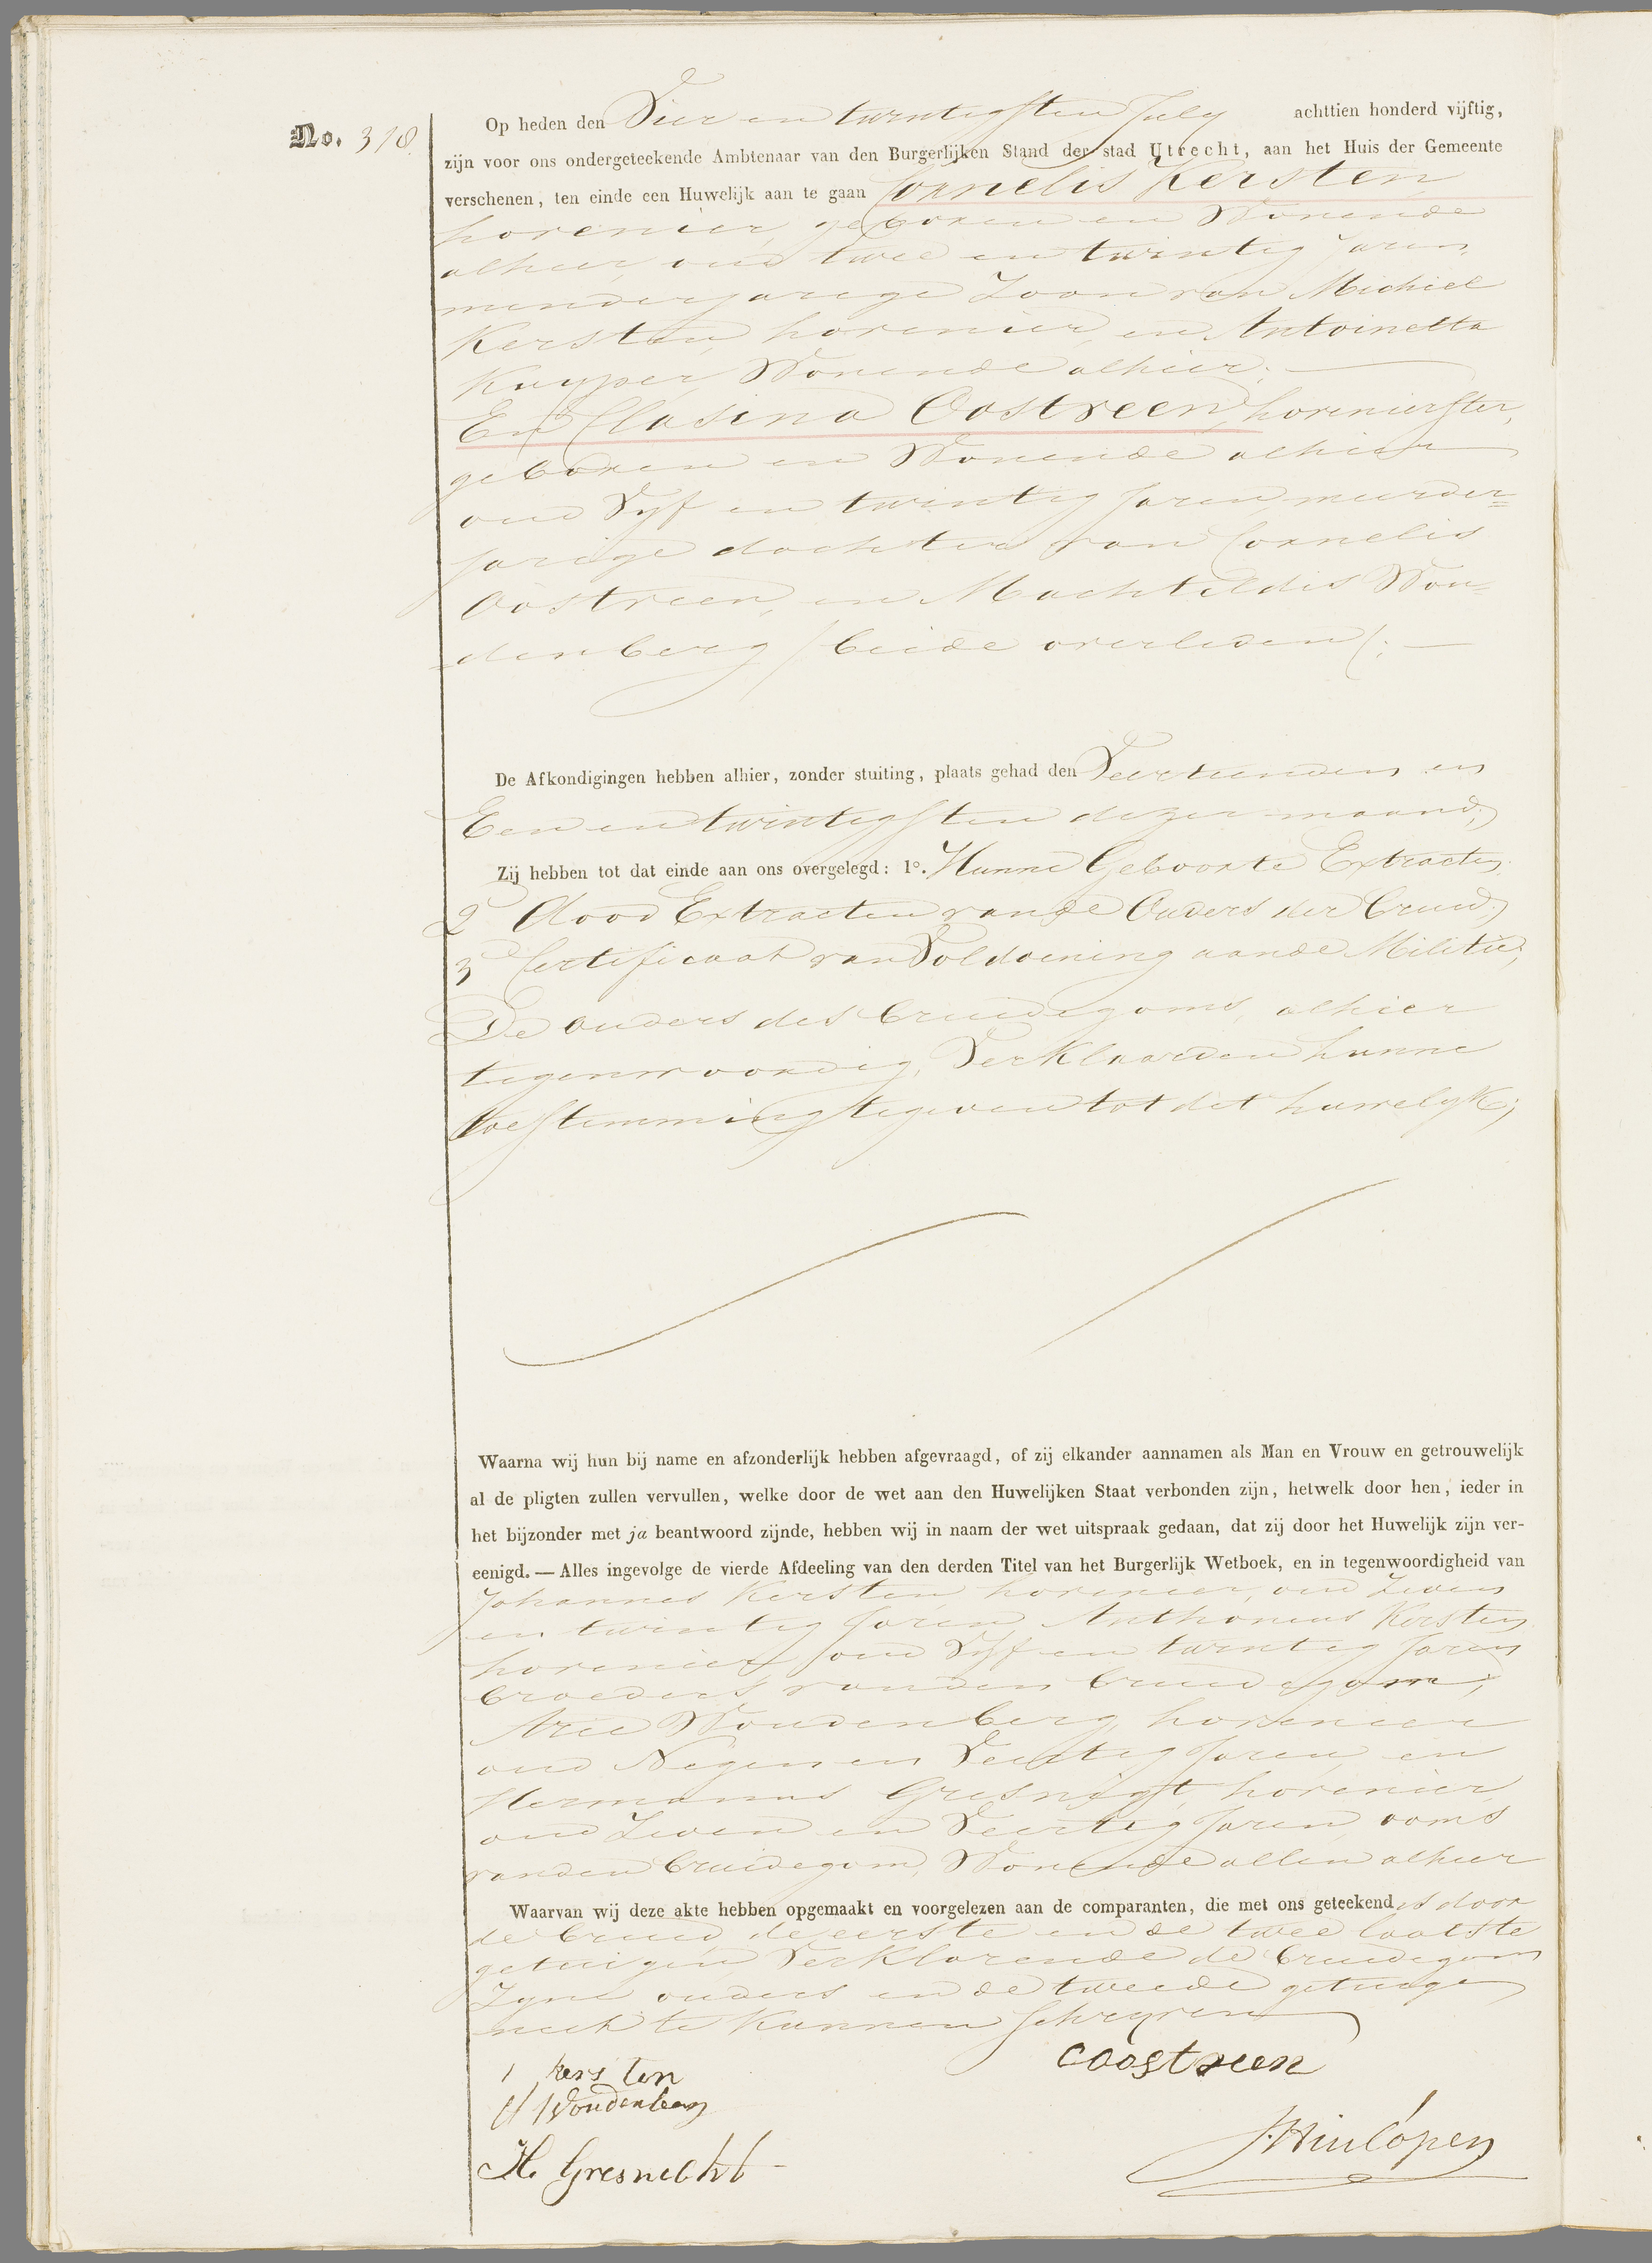 No. 318.
Op heden den Vier en twintigsten July achttien honderd vijftig,
zijn voor ons ondergeteekende Ambtenaar van den Burgerlijken Stand der stad Utrecht, aan het Huis der Gemeente
verschenen, ten einde een Huwelijk aan te gaan Cornelis Kersten
hovenier, geboren en Wonende
alhier oud twee en twintig Jaren,
minderjarige Zoon van Michiel
Kersten, hovenier, en Antoinetta
Kuyper, Wonende alhier; —
En Clasina Oostveen, hovenierster,
geboren en Wonende alhier
oud Vyf en twintig Jaren, meerder=
jarige dochter van Cornelis
Oostveen, en Machteldis Wou=
=denberg /beide overleden/; —
De Afkondigingen hebben alhier, zonder stuiting, plaats gehad den Veertienden en
Een en twintigsten dezer maand;
Zij hebben tot dat einde aan ons overgelegd: 1°. Hunne Geboorte Extracten
2 dood Extracten van de Ouders der bruid;
3 Certificaat van Voldoening aan de Militie;
De ouders des bruidegoms, alhier
tegenwoordig, Verklaarden hunne
toestemming te geven tot dit huwelyk;
Waarna wij hun bij name en afzonderlijk hebben afgevraagd, of zij elkander aannamen als Man en Vrouw en getrouwelijk
al de pligten zullen vervullen, welke door de wet aan den Huwelijken Staat verbonden zijn, hetwelk door hen, ieder in
het bijzonder met ja beantwoord zijnde, hebben wij in naam der wet uitspraak gedaan, dat zij door het Huwelijk zijn ver-
eenigd. — Alles ingevolge de vierde Afdeeling van den derden Titel van het Burgerlijk Wetboek, en in tegenwoordigheid van
Johannes Kersten, hovenier, oud Zeven
en twintig Jaren, Anthonius Kersten
hovenier, oud Vyf en twintig Jaren
broeders van den bruidegom;
Arie Woudenberg, hovenier
oud Negen en Veertig Jaren, en
Hermanus Gresnigt, hovenier,
oud Zeven en Veertig Jaren, ooms
van den bruidegom, Wonende allen alhier
Waarvan wij deze akte hebben opgemaakt en voorgelezen aan de comparanten, die met ons geteekend is door
de bruid, de eerste en de twee laatste
getuigen, Verklarende de bruidegom
Zyne ouders en de tweede getuige
niet te kunnen schryven
J Kersten
COostveen
A Woudenberg
H. Gresnicht
J. Hinlópen